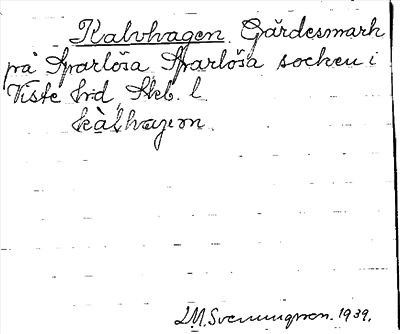 Kalvhagen. Gärdesmark
på Sparlösa, Sparlösa socken i
Viste hrd, Skb. l.
kàlvhagen.
L.M. Svenungsson. 1939.